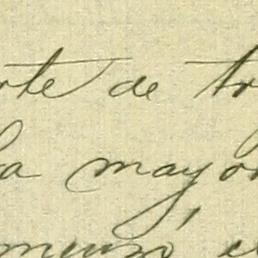 rte de tr
la mayor
menzó, e